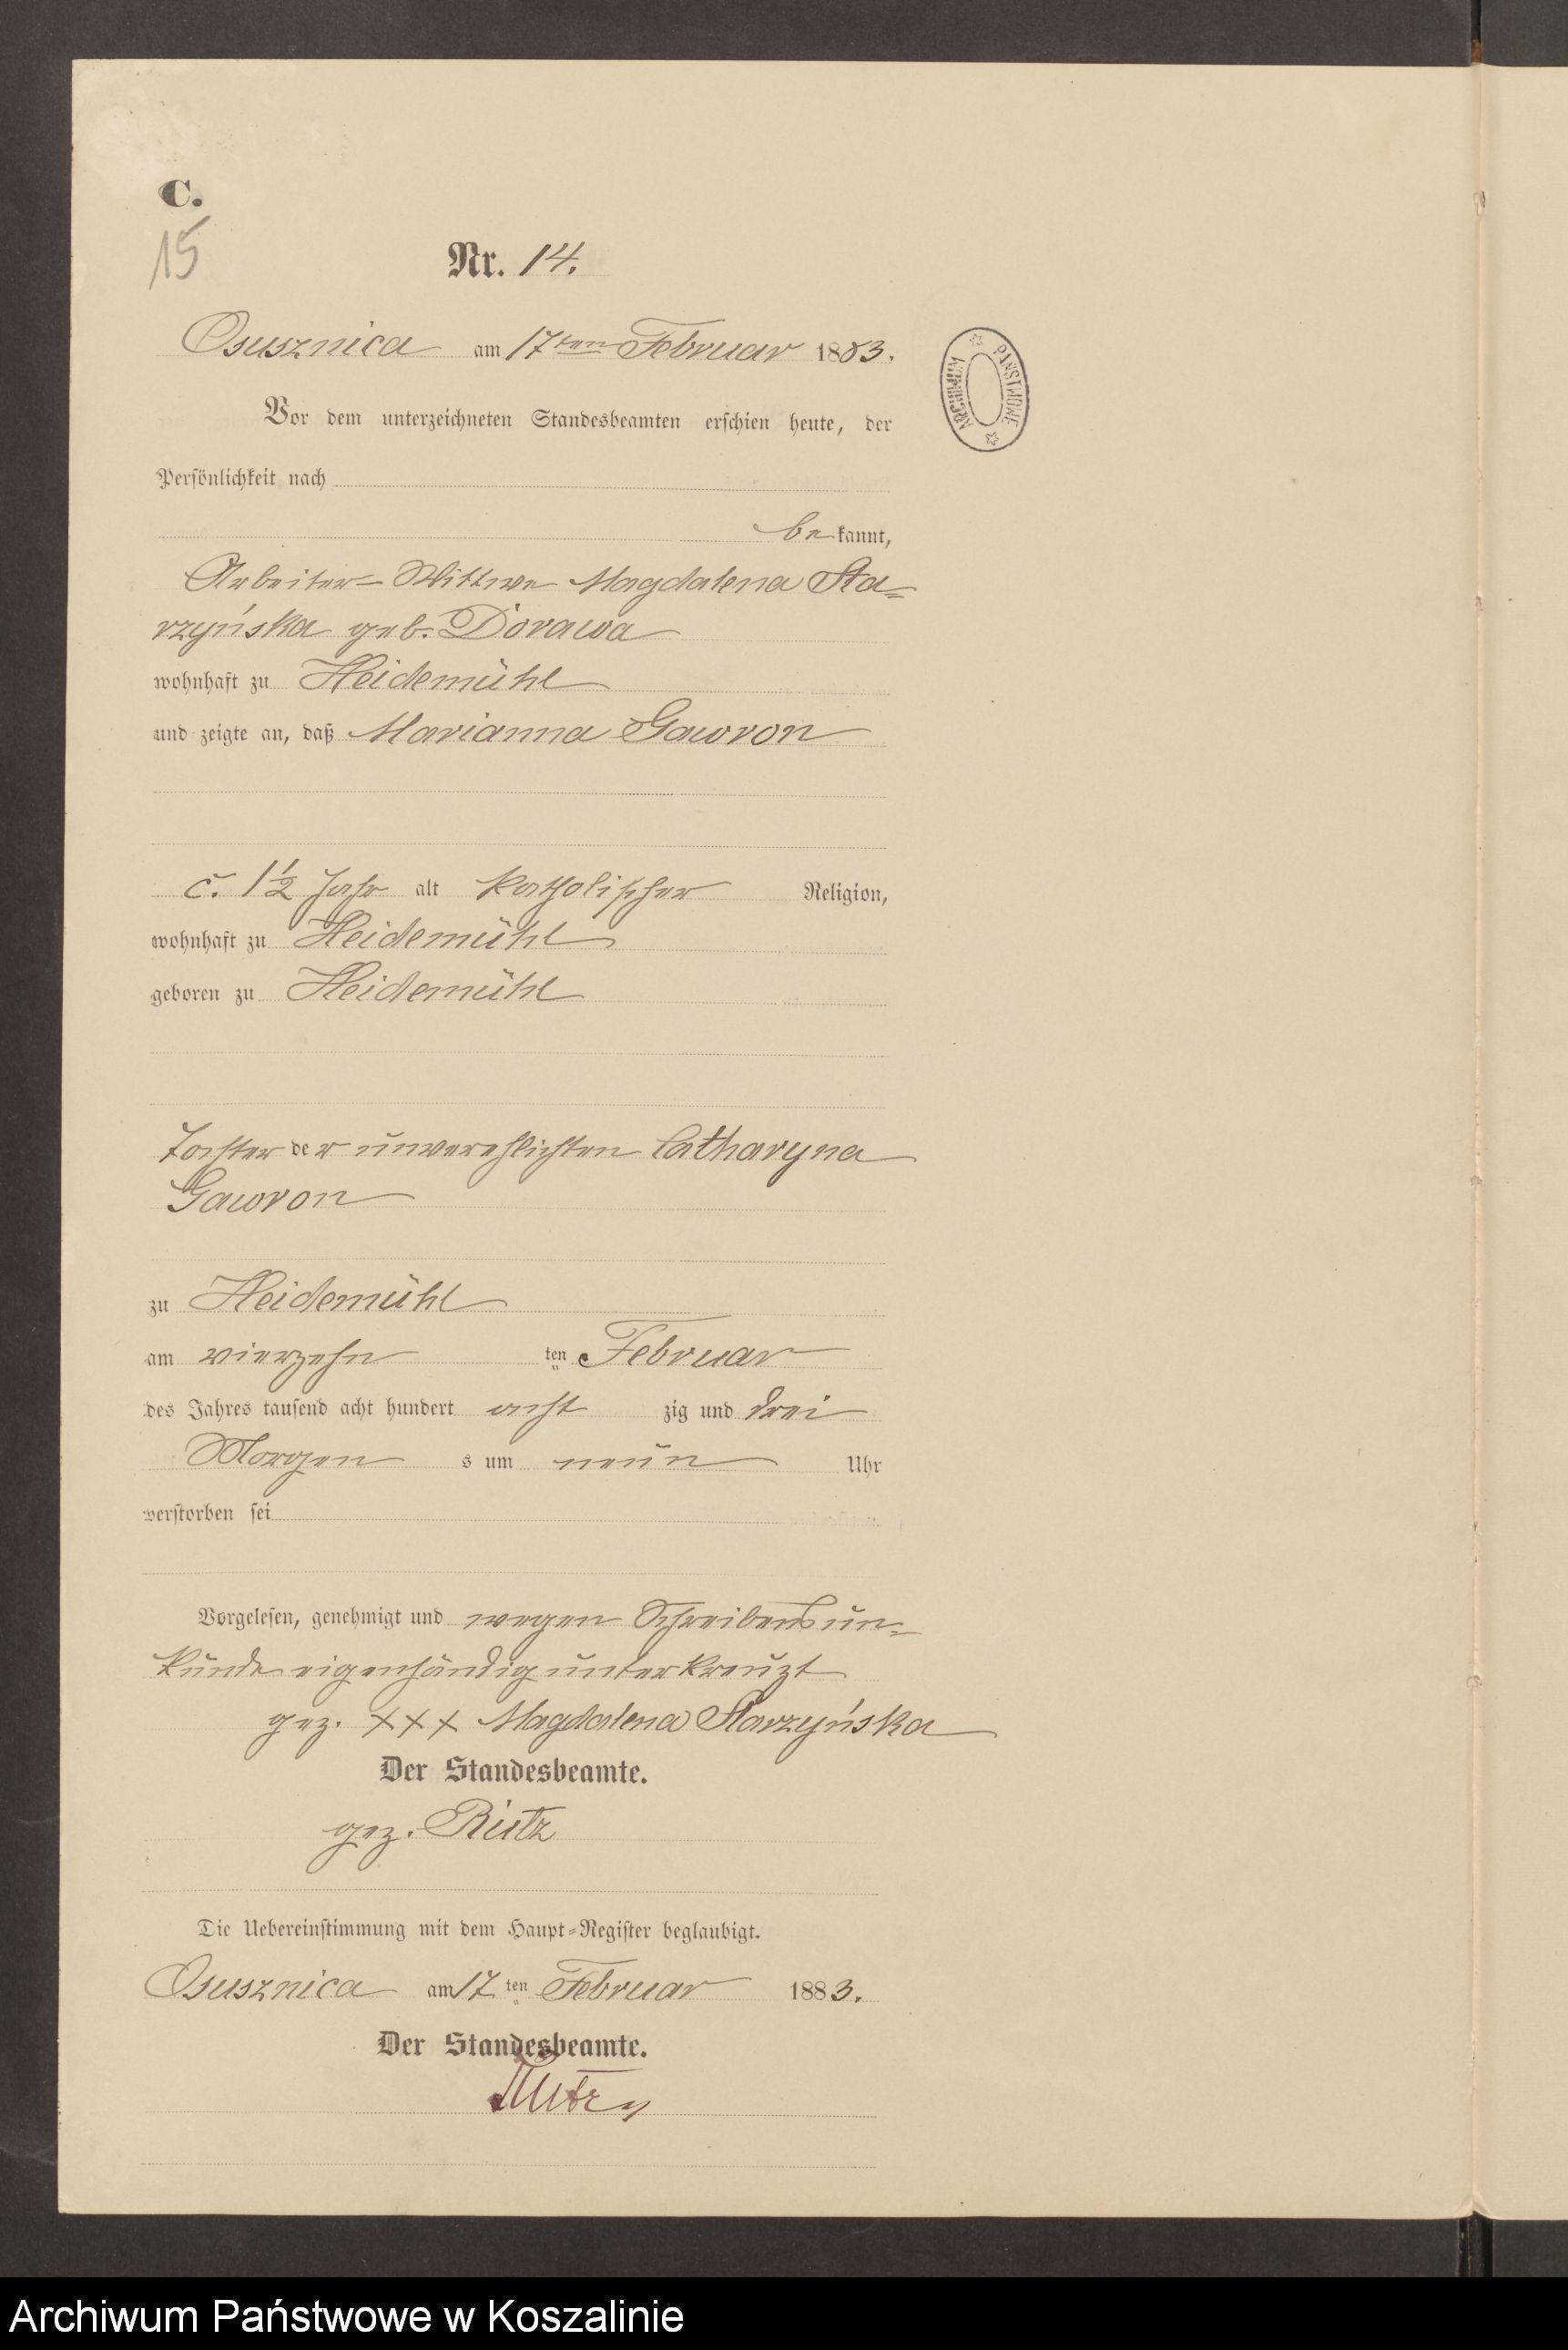 C.
15
Nr. 14.
Osusznica am 17ten Februar 1883.
ARCHIWUM PAŃSTWOWE
Vor dem unterzeichneten Standesbeamten erschien heute, der
Persönlichkeit nach
be kannt,
Arbeiter=Wittwe Magdalena Sta=
rzyńska geb. Dorawa
wohnhaft zu Heidemühl
und zeigte an, daß Marianna Gawron
c. 1 1/2 Jahr alt katholischer Religion,
wohnhaft zu Heidemühl
geboren zu Heidemühl
Tochter der unverehlichten Catharyna
Gawron
zu Heidemühl
am vierzehn ten Februar
des Jahres tausend acht hundert acht zig und drei
Morgen s um neun Uhr
verstorben sei
Vorgelesen, genehmigt und wegen Schreibens un=
kunde eigenhändig unterkreuzt
gez. XXX Magdalena Starzyńska
Der Standesbeamte.
gez. Rutz
Die Uebereinstimmung mit dem Haupt=Register beglaubigt.
Osusznica am 17 ten Februar 1883.
Der Standesbeamte.
Rutz
Archiwum Państwowe w Koszalinie